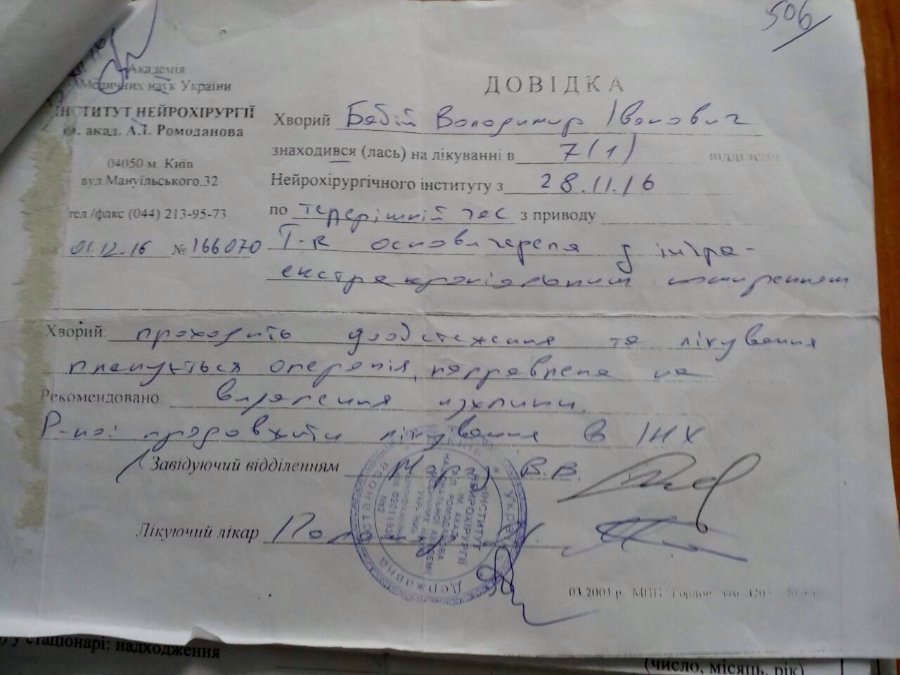 506
Академія
Медичних наук України
ІНСТИТУТ НЕЙРОХІРУРГІЇ
ім. акад. А.І. Ромоданова
04050 м. Київ
вул Мануїльського,32
тел./факс (044) 213-95-73
01.12.16 № 166070
ДОВІДКА
Хворий Бабій Володимир Іванович
знаходився (лась) на лікуванні в 7(1) відділенні
Нейрохірургічного інституту з 28.11.16
по теперішній час з приводу
Т-к основи черепа з інтра-
екстракраніальним поширенням
Хворий проходить дообстеження та лікування
планується операція, направлена на
Рекомендовано видалення пухлини.
Р-но: продовжити лікування в ІНХ
Завідуючий відділенням В.В.
Лікуючий лікар
ІНСТИТУТ
НЕЙРОХІРУРГІЇ
Державна
03.2001 р. МПП
у стаціонарі: надходження
(число, місяць, рік)